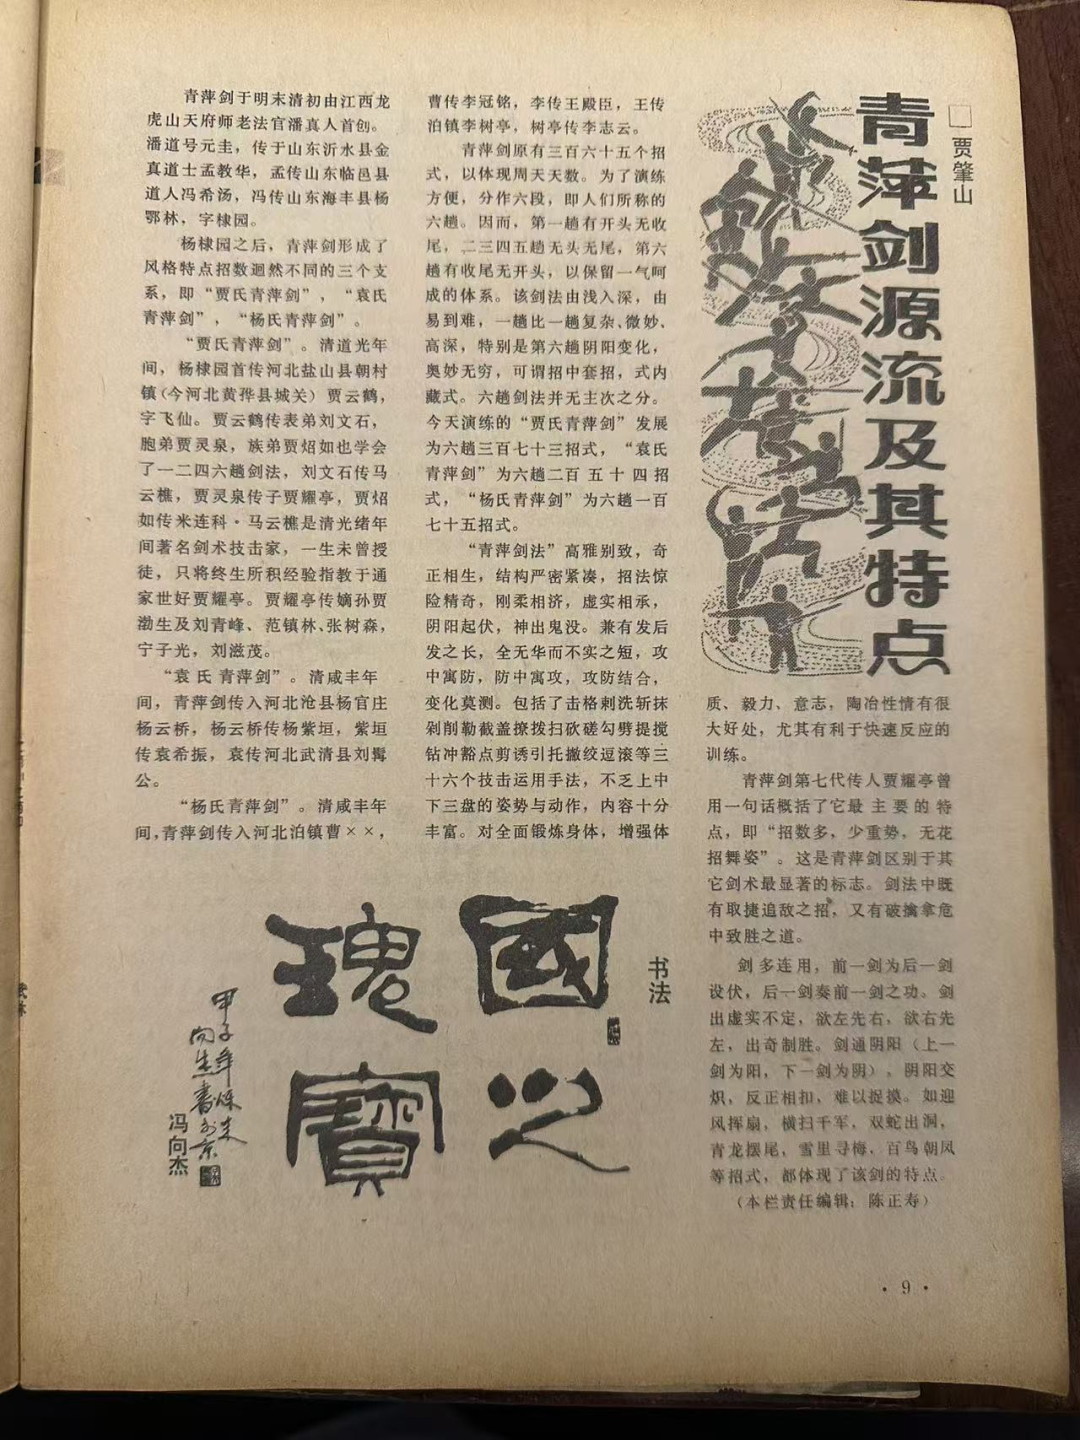 青萍剑源流及其特点
□贾肇山
青萍剑于明末清初由江西龙
虎山天府师老法官潘真人首创。
潘道号元圭，传于山东沂水县金
真道士孟教华，孟传山东临邑县
道人冯希汤，冯传山东海丰县杨
鄂林，字棣园。
杨棣园之后，青萍剑形成了
风格特点招数迥然不同的三个支
系，即“贾氏青萍剑”，“袁氏
青萍剑”，“杨氏青萍剑”。
“贾氏青萍剑”。清道光年
间，杨棣园首传河北盐山县朝村
镇（今河北黄骅县城关）贾云鹤，
字飞仙。贾云鹤传表弟刘文石，
胞弟贾灵泉，族弟贾炤如也学会
了一二四六趟剑法，刘文石传马
云樵，贾灵泉传子贾耀亭，贾炤
如传米连科·马云樵是清光绪年
间著名剑术技击家，一生未曾授
徒，只将终生所积经验指教于通
家世好贾耀亭。贾耀亭传嫡孙贾
渤生及刘青峰、范镇林、张树森，
宁子光，刘滋茂。
“袁氏青萍剑”。清咸丰年
间，青萍剑传入河北沧县杨官庄
杨云桥，杨云桥传杨紫垣，紫垣
传袁希振，袁传河北武清县刘髯
公。
“杨氏青萍剑”。清咸丰年
间，青萍剑传入河北泊镇曹××，
曹传李冠铭，李传王殿臣，王传
泊镇李树亭，树亭传李志云。
青萍剑原有三百六十五个招
式，以体现周天天数。为了演练
方便，分作六段，即人们所称的
六趟。因而，第一趟有开头无收
尾，二三四五趟无头无尾，第六
趟有收尾无开头，以保留一气呵
成的体系。该剑法由浅入深，由
易到难，一趟比一趟复杂、微妙、
高深，特别是第六趟阴阳变化，
奥妙无穷，可谓招中套招，式内
藏式。六趟剑法并无主次之分。
今天演练的“贾氏青萍剑”发展
为六趟三百七十三招式，“袁氏
青萍剑”为六趟二百五十四招
式，“杨氏青萍剑”为六趟一百
七十五招式。
“青萍剑法”高雅别致，奇
正相生，结构严密紧凑，招法惊
险精奇，刚柔相济，虚实相承，
阴阳起伏，神出鬼没。兼有发后
发之长，全无华而不实之短，攻
中寓防，防中寓攻，攻防结合，
变化莫测。包括了击格刺洗斩抹
剁削勒截盖撩拨扫砍磋勾劈提搅
钻冲豁点剪诱引托撇绞逗滚等三
十六个技击运用手法，不乏上中
下三盘的姿势与动作，内容十分
丰富。对全面锻炼身体，增强体
质、毅力、意志，陶冶性情有很
大好处，尤其有利于快速反应的
训练。
青萍剑第七代传人贾耀亭曾
用一句话概括了它最主要的特
点，即“招数多，少重势，无花
招舞姿”。这是青萍剑区别于其
它剑术最显著的标志。剑法中既
有取捷追敌之招，又有破擒拿危
中致胜之道。
剑多连用，前一剑为后一剑
设伏，后一剑奏前一剑之功。剑
出虚实不定，欲左先右，欲右先
左，出奇制胜。剑通阴阳（上一
剑为阳，下一剑为阴），阴阳交
炽，反正相扣，难以捉摸。如迎
风挥扇，横扫千军，双蛇出洞，
青龙摆尾，雪里寻梅，百鸟朝凤
等招式，都体现了该剑的特点。
（本栏责任编辑：陈正寿）
國之
瑰寶
书法
冯向杰
甲子年
·9·